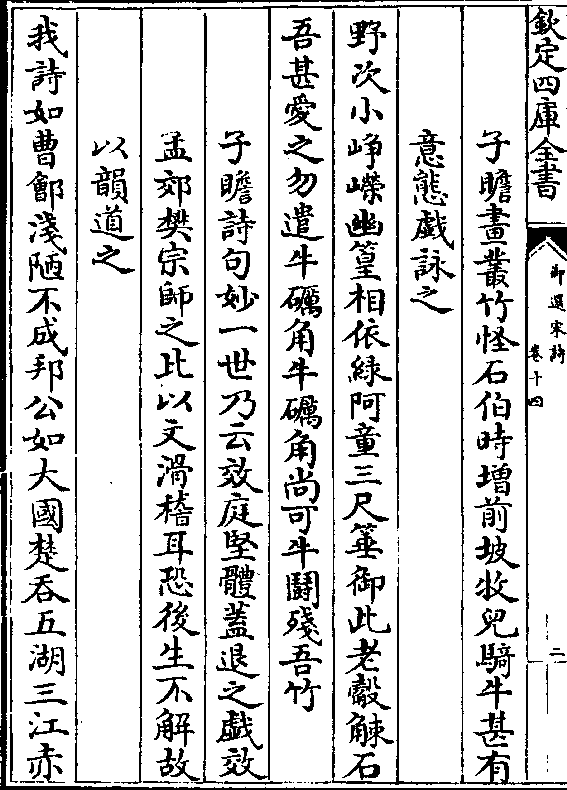 欽定四庫全書
御選宋詩
卷十四
二
子瞻畫叢竹怪石伯時增前坡牧兒騎牛甚有
意態戲詠之
野次小崢嶸幽篁相依緑阿童三尺箠御此老觳觫石
吾甚愛之勿遣牛礪角牛礪角尚可牛鬬殘吾竹
子瞻詩句妙一世乃云效庭堅體蓋退之戲效
孟郊樊宗師之比以文滑稽耳恐後生不解故
以韻道之
我詩如曹鄶淺陋不成邦公如大國楚吞五湖三江赤